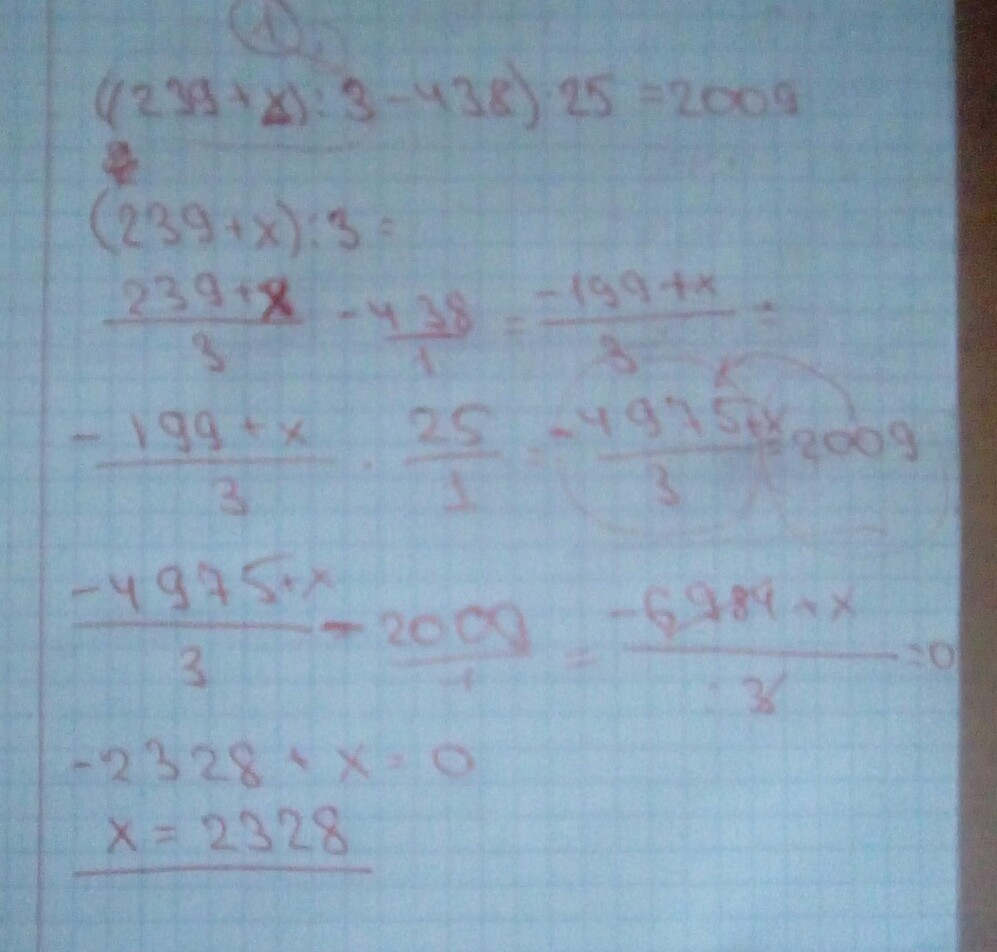 1
((239+x):3-438)·25=2009
(239+x):3=
239+x/3 - 438/1 = -199+x/3 =
-199+x/3 · 25/1 = -4975+x/3 = 2009
-4975+x/3 - 2009/1 = -6984+x/3 = 0
-2328+x=0
x=2328